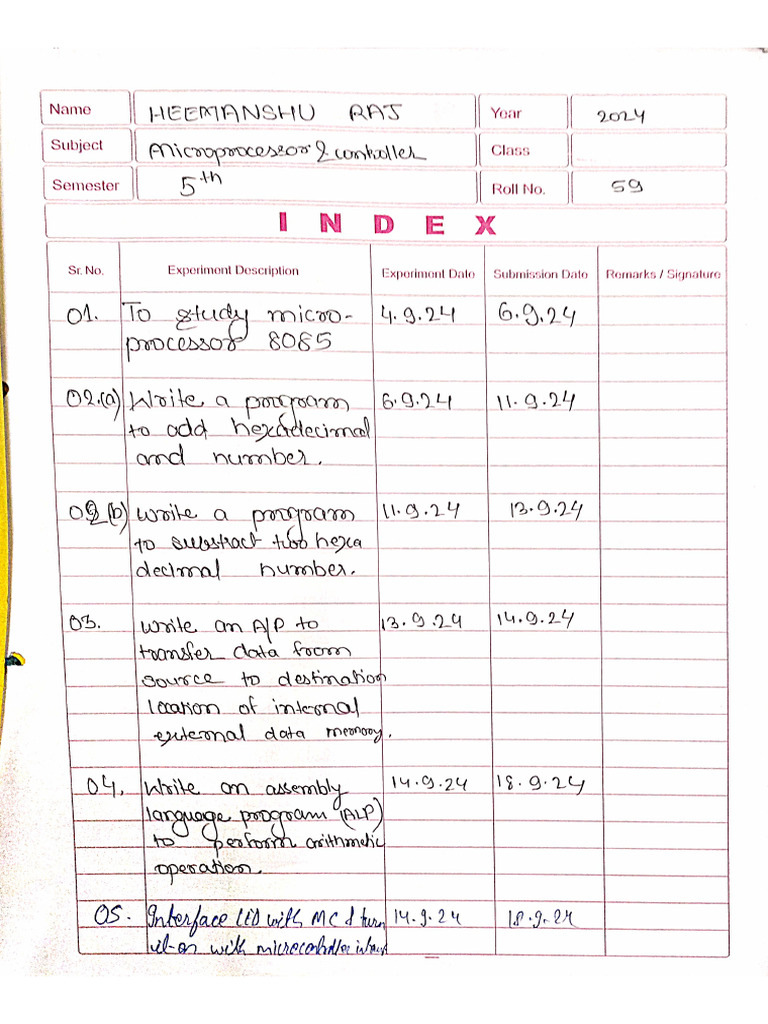 Name HEEMANSHU RAJ Year 2024
Subject Microprocessor & controller Class
Semester 5th Roll No. 59
INDEX
Sr. No. Experiment Description Experiment Date Submission Date Remarks / Signature
01. To study micro- 4.9.24 6.9.24
processor 8085
02.(a) Write a program 6.9.24 11.9.24
to add hexadecimal
and number.
02(b) write a program 11.9.24 13.9.24
to substract two hexa
decimal number.
03. write an A/P to 13.9.24 14.9.24
transfer data from
source to destination
location of internal
external data memory.
04. Write an assembly 14.9.24 18.9.24
language program (ALP)
to perform arithmetic
operation.
05. Interface with MC & turn 14.9.24 18.9.24
it-on with microcontroller